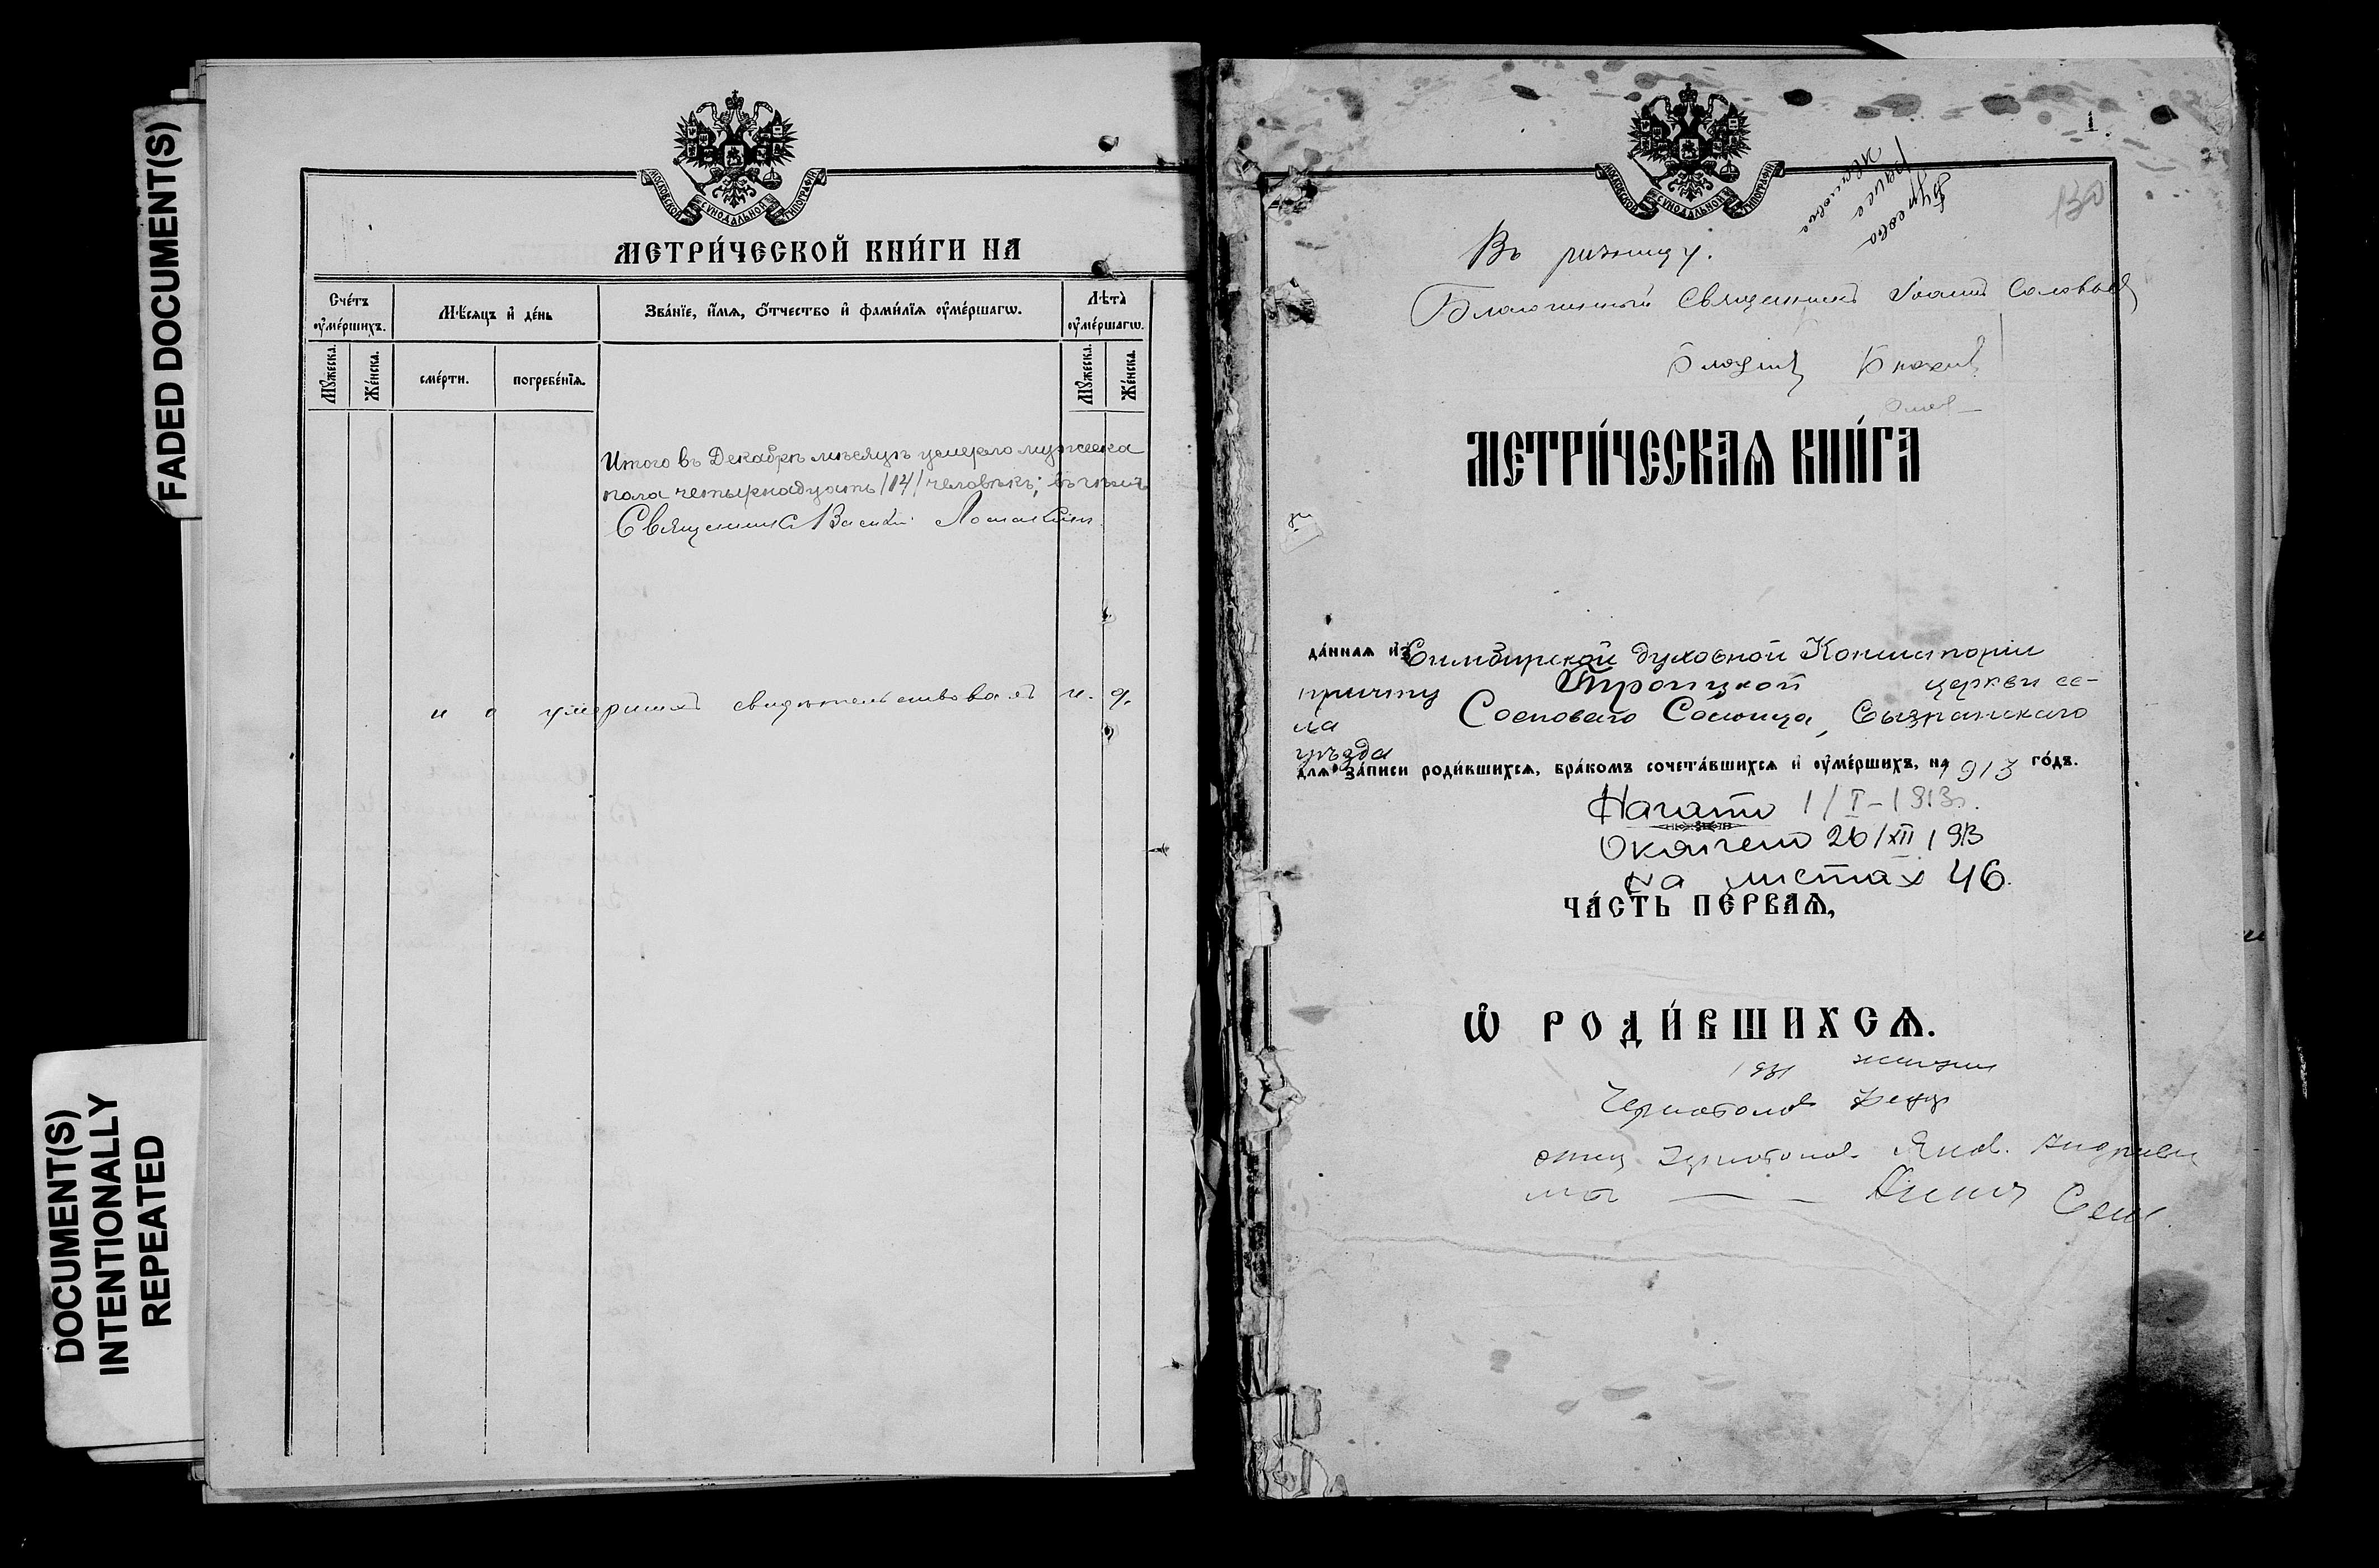 FADED DOCUMENT(S)
DOCUMENT(S)
INTENTIONALLY
REPEATED
МОСКОВСКОЙ СѴНОДАЛЬНОЙ ТИПОГРАФІИ
МЕТРИ́ЧЕСКОЙ КНИ́ГИ НА
Сче́тъ ᲂу҆ме́ршихъ.
Мѣ́сяцъ и҆ де́нь
Зва́нїе, и҆́мѧ, ѻ҆́тчество и҆ фами́лїѧ ᲂу҆ме́ршагѡ.
Лѣ́та ᲂу҆ме́ршагѡ.
Мꙋ́жеска.
Же́нска.
сме́рти.
погребе́нїѧ.
Мꙋ́жеска.
Же́нска.
Итого въ Декабрѣ мѣсяцѣ умерло мужеска
пола четырнадцать /14/ человѣкъ;
Священникъ Василій
и о умершихъ свидѣтельствовалъ и. д.
1.
МОСКОВСКОЙ СѴНОДАЛЬНОЙ ТИПОГРАФІИ
130
Въ ризницу.
Благочинный Священникъ Іоаннъ Соловьевъ
МЕТРИ́ЧЕСКАѦ КНИ́ГА
да́ннаѧ и҆з̾ Симбирской духовной Консисторіи
причту Троицкой церкви се-
ла Соснового Солонца, Сызранскаго
уѣзда
длѧ за́писи роди́вшихсѧ, бра́комъ сочета́вшихсѧ и҆ ᲂу҆ме́ршихъ, на 1913 го́дъ.
Начато 1/I-1913г.
Окончено 26/XII 1913
на листах 46.
ЧА́СТЬ ПЕ́РВАѦ,
Ѡ҆ РОДИ́ВШИХСѦ.
1931
отец Яков. Андреев